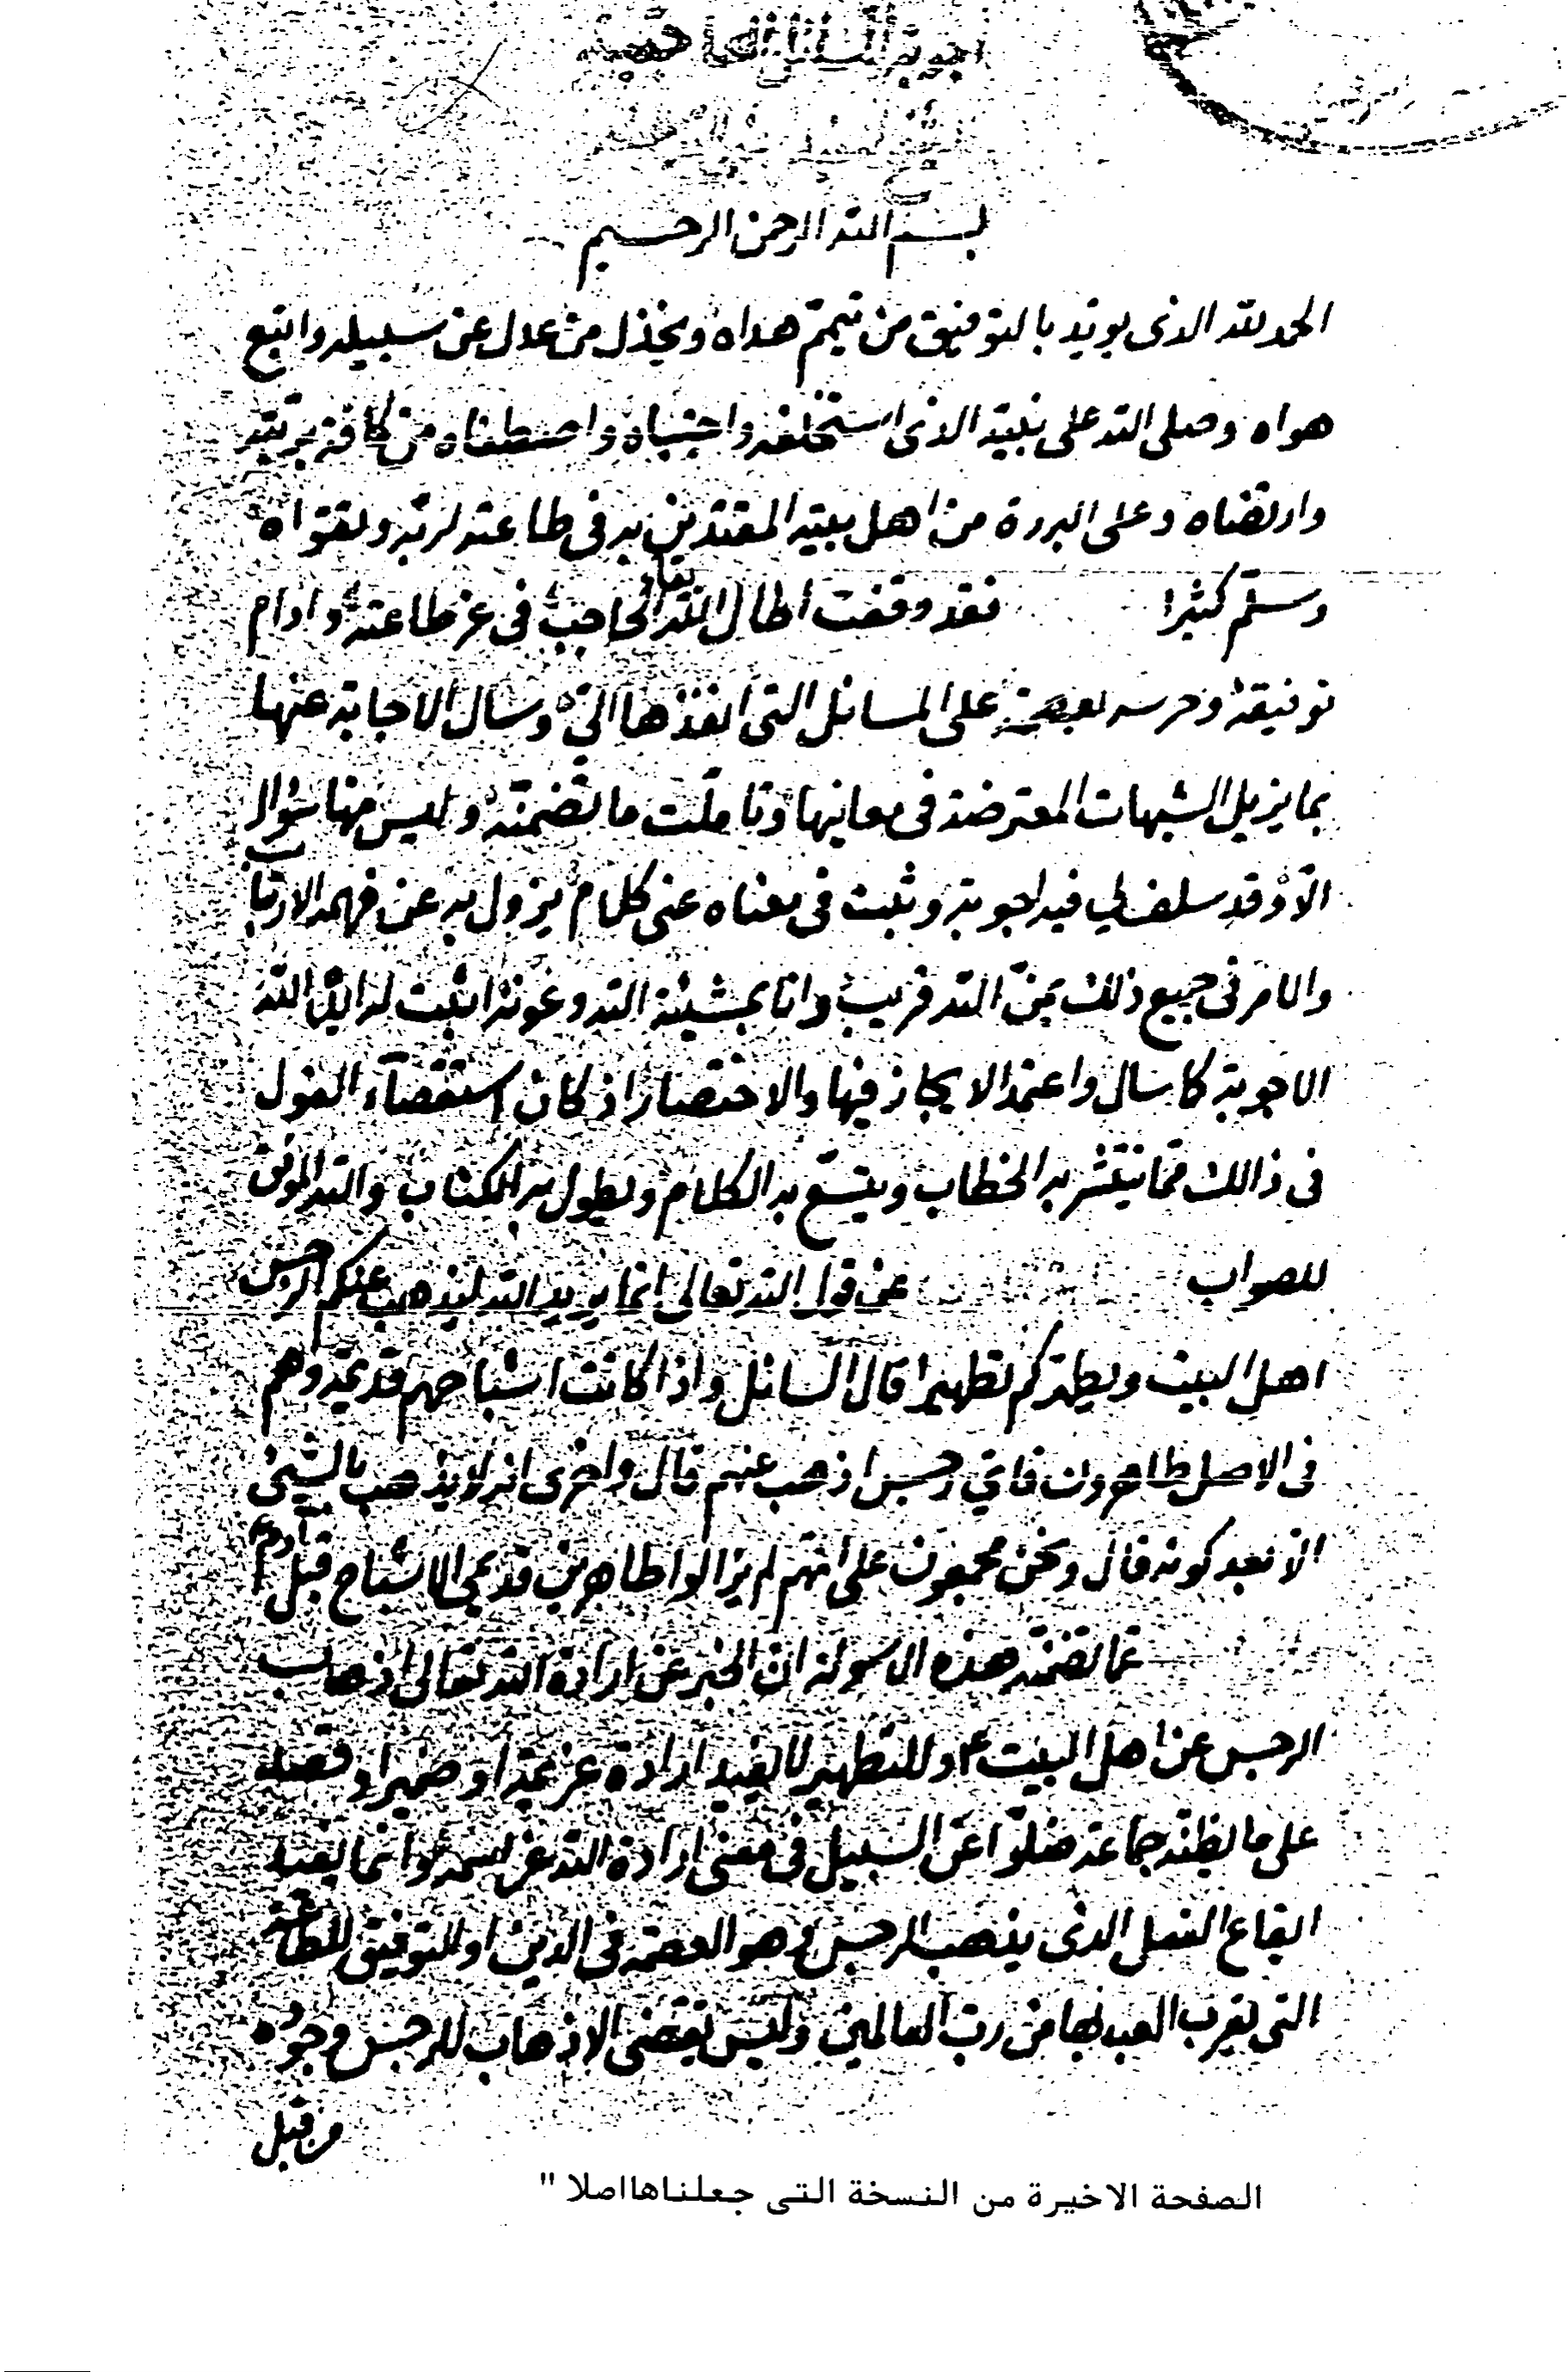 اجوبة المسائل الحاجبية
بسم الله الرحمن الرحيم
الحمد لله الذي يؤيد بالتوفيق من تيمم هداه ويخذل من عدل عن سبيله واتبع
هواه وصلى الله على نبيه الذي استخلفه واجتباه واصطفاه من كافة بريته
وارتضاه وعلى البررة من اهل بيته المقتدين به في طاعته لربه وتقواه
وسلم كثيرا فقد وقفت اطال الله بقاء الحاجب في عز طاعته وادام
توفيقه وحرسه بعصمته على المسائل التي انفذها الي وسال الاجابة عنها
بما يزيل الشبهات المعترضة في معانيها وتاملت ما تضمنته وليس منها سؤال
الا وقد سلف لي فيه اجوبة وثبت في معناه عني كلام يزول به عن فهمه الارتياب
والامر في جميع ذلك بمن الله قريب وانا بمشيئة الله وعونه اثبت له ايده الله
الاجوبة كما سال واعتمد الايجاز فيها والاختصار اذ كان استقصاء القول
في ذالك مما ينتشر به الخطاب ويتسع به الكلام ويطول به الكتاب والله الموفق
للصواب عن قول الله تعالى انما يريد الله ليذهب عنكم الرجس
اهل البيت ويطهركم تطهيرا قال السائل واذا كانت اشباحهم قديمة وهم
في الاصل طاهرون فاي رجس اذهب عنهم قال واخرى انه لا يذهب بالشيئ
الا بعد كونه قال ونحن مجمعون على انهم لم يزالوا طاهرين قديمي الاشباح قبل آدم ع
عما تضمنه هذه الاسولة ان الخبر عن ارادة الله تعالى اذهاب
الرجس عن اهل البيت ع والتطهير لا يفيد ارادة عزيمة او ضميرا وقصدا
على ما يظنه جماعة ضلوا عن السبيل في معنى ارادة الله عز اسمه وانما يفيد
ايقاع الفعل الذي يذهب الرجس وهو العصمة في الدين او التوفيق للطاعة
التي يقرب العبد بها من رب العالمين وليس يقتضي الاذهاب للرجس وجوده
من قبل
الصفحة الاخيرة من النسخة التي جعلناها اصلا "